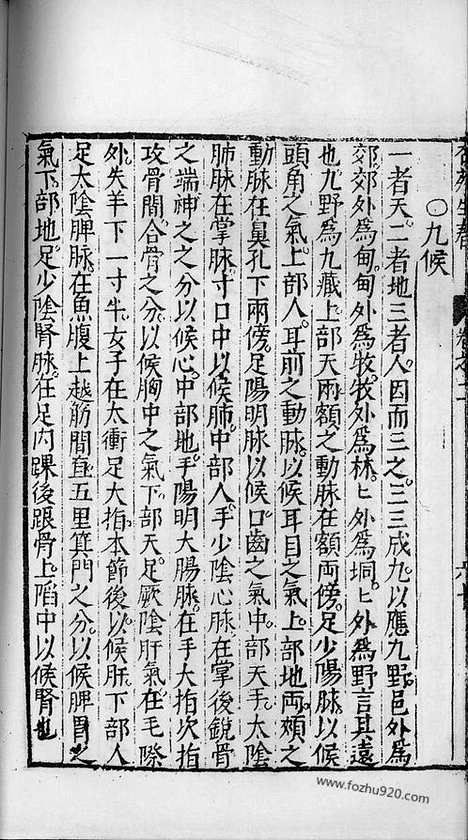 〇九候
一者天二者地三者人因而三之三三成九以應九野邑外爲
郊郊外爲甸甸外爲牧牧外爲林匕外爲坰匕外爲野言其遠
也九野爲九藏上部天兩額之動脉在額兩傍足少陽脉以候
頭角之氣上部人耳前之動脉以候耳目之氣上部地兩頰之
動脉在鼻孔下兩傍足陽明脉以候口齒之氣中部天手太陰
肺脉在掌脉寸口中以候肺中部人手少陰心脉在掌後銳骨
之端神之之分以候心中部地手陽明大腸脉在手大指次指
攻骨間合骨之分以候胸中之氣下部天足厥陰肝氣在毛際
外失羊下一寸半女子在太衝足大指本節後以候肝下部人
足太陰脾脉在魚腹上越筋間直五里箕門之分以候脾胃之
氣下部地足少陰腎脉在足內踝後跟骨上陷中以候腎也
www.fozhu920.com